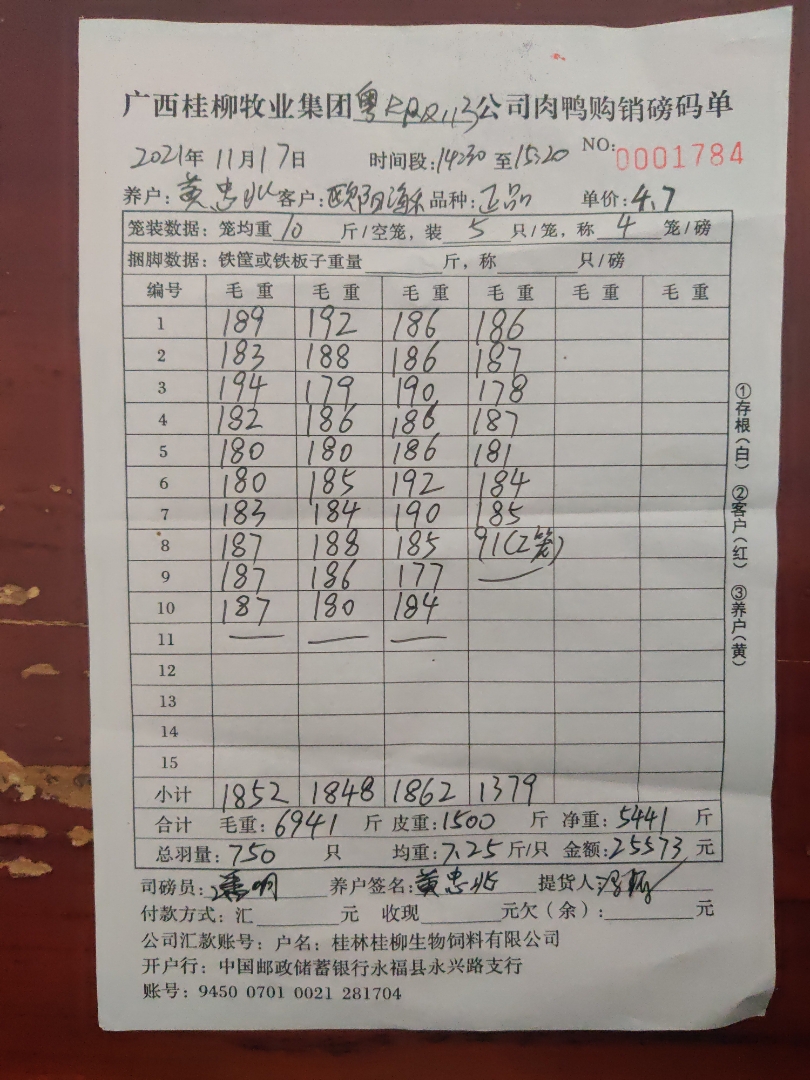 广西桂柳牧业集团粤KRQ113公司肉鸭购销磅码单
2021年11月17日 时间段:14:30至15:20 NO:0001784
养户:黄忠业 客户:欧阳海 品种:正品 单价:4.7
笼装数据:笼均重10斤/空笼,装5只/笼,称4笼/磅
捆脚数据:铁筐或铁板子重量 斤,称 只/磅
编号 毛重 毛重 毛重 毛重 毛重 毛重
1 189 192 186 186
2 183 188 186 187
3 194 179 190 178
4 182 186 186 187
5 180 180 186 181
6 180 185 192 184
7 183 184 190 185
8 187 188 185 91(2笼)
9 187 186 177 —
10 187 180 184
11 — — —
12
13
14
15
小计 1852 1848 1862 1379
合计 毛重:6941斤 皮重:1500斤 净重:5441斤
总羽量:750只 均重:7.25斤/只 金额:25573元
司磅员: 养户签名:黄忠业 提货人:
付款方式:汇 元 收现 元欠(余): 元
公司汇款账号:户名:桂林桂柳生物饲料有限公司
开户行:中国邮政储蓄银行永福县永兴路支行
账号:9450 0701 0021 281704
①存根(白) ②客户(红) ③养户(黄)